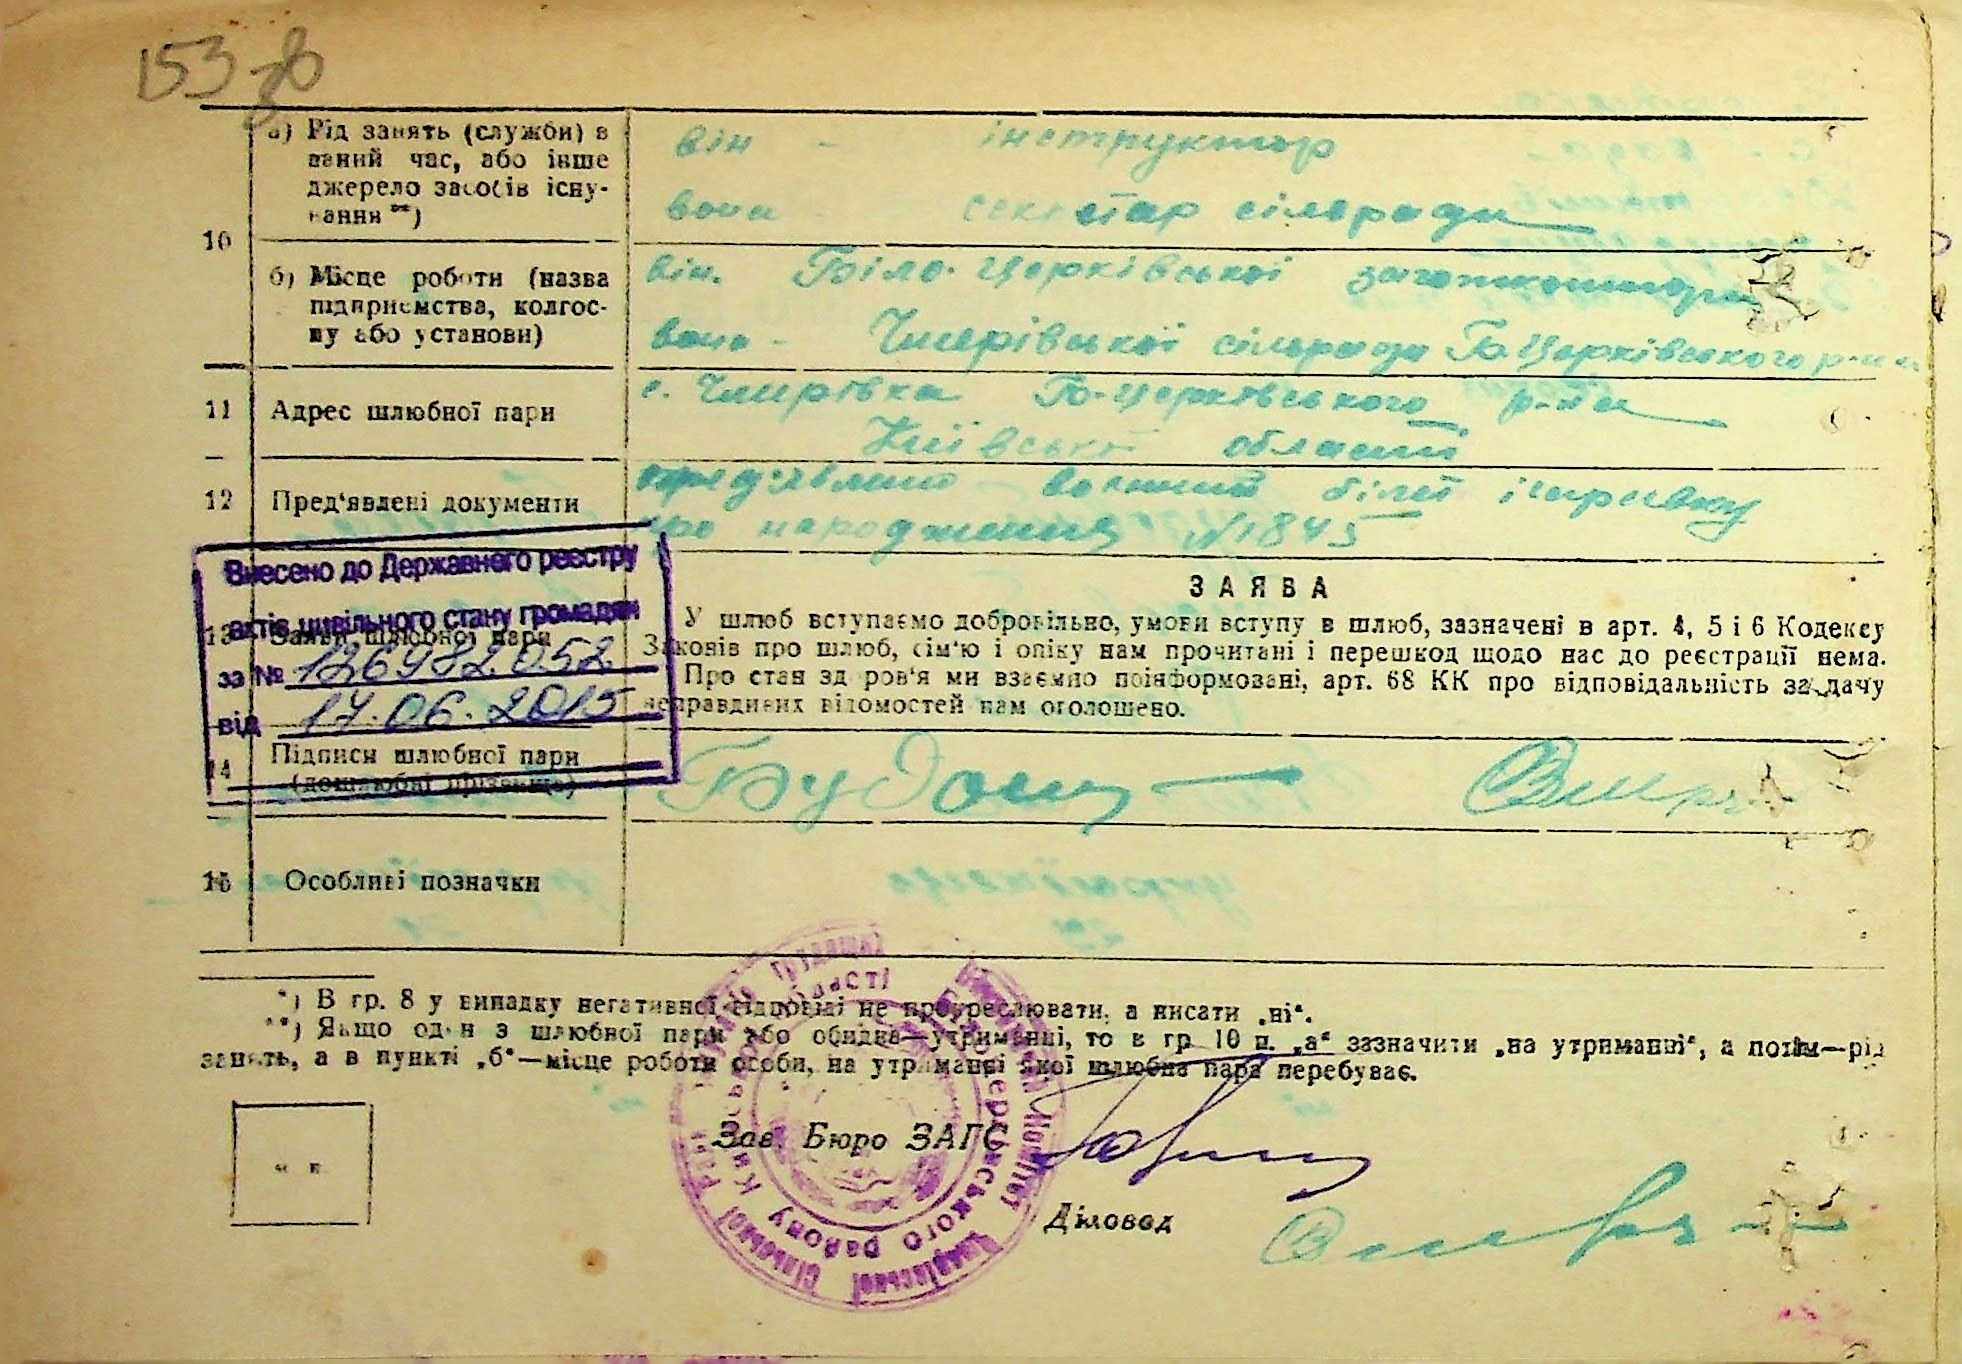 153 зв
а) Рід занять (служби) в
даний час, або інше
джерело засобів існу-
вання **)
він - інструктор
вона секретар сільради
10
б) Місце роботи (назва
підприємства, колгос-
пу або установи)
він. Біло-Церківської заготконтори
вона - Чмирівської сільради Б.Церківського р-н
11 Адрес шлюбної пари
с. Чмирівка Б-Церківського р-на
Київської області
12 Пред'явлені документи
пред'явлено воєнний білет і справку
про народження №1845
Внесено до Державного реєстру
актів цивільного стану громадян
за № 126982052
від 17.06.2015
13 Заяви шлюбної пари
ЗАЯВА
У шлюб вступаємо добровільно, умови вступу в шлюб, зазначені в арт. 4, 5 і 6 Кодексу
Законів про шлюб, сім'ю і опіку нам прочитані і перешкод щодо нас до реєстрації нема.
Про стан здоров'я ми взаємно поінформовані, арт. 68 КК про відповідальність за дачу
неправдивих відомостей нам оголошено.
14 Підписи шлюбної пари
(дошлюбні прізвища)
15 Особливі позначки
*) В гр. 8 у випадку негативної відповіді не прокреслювати, а писати „ні“.
**) Якщо один з шлюбної пари або обидва—утриманні, то в гр. 10 п. „а“ зазначити „на утриманні“, а потім—рід
занять, а в пункті „б“—місце роботи особи, на утриманні якої шлюбна пара перебуває.
Зав. Бюро ЗАГС
м п
Діловод